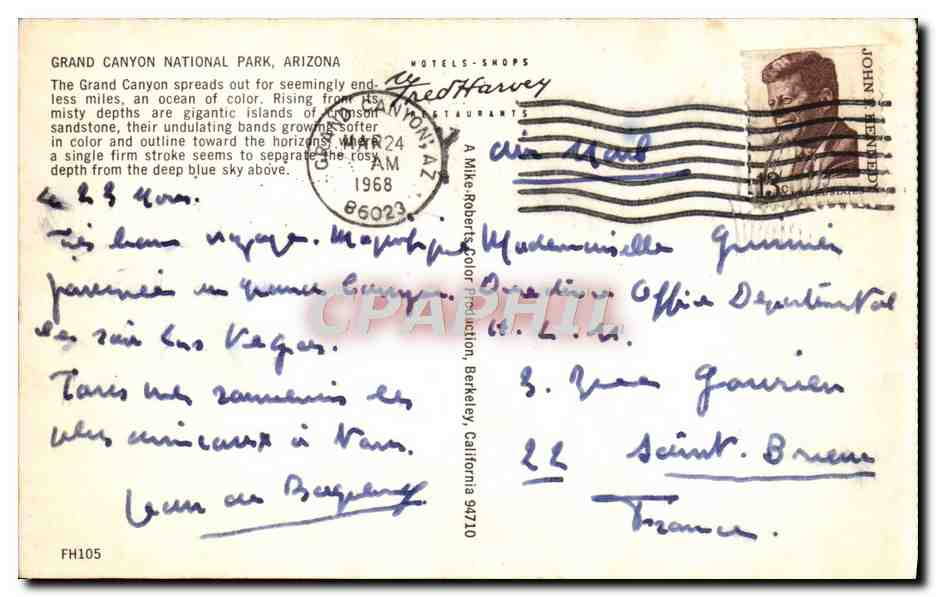 GRAND CANYON NATIONAL PARK, ARIZONA
The Grand Canyon spreads out for seemingly end-
less miles, an ocean of color. Rising from its
misty depths are gigantic islands of crimson
sandstone, their undulating bands growing softer
in color and outline toward the horizon, where
a single firm stroke seems to separate the rosy
depth from the deep blue sky above.
HOTELS-SHOPS
Fred Harvey
RESTAURANTS
GRAND CANYON, AZ
MAR 24
AM
1968
86023
JOHN F KENNEDY
13c
Air Mail
le 23 Mars.
Très beau voyage. Magnifique
journée au Grand Canyon.
Ce soir Las Vegas.
Tous mes souvenirs les
plus amicaux à Vous.
Jean de
Mademoiselle
Directrice Office Départemental
H. L. M.
3. Rue
22 Saint-Brieuc
France.
A Mike-Roberts Color Production, Berkeley, California 94710
CPAPHIL
FH105